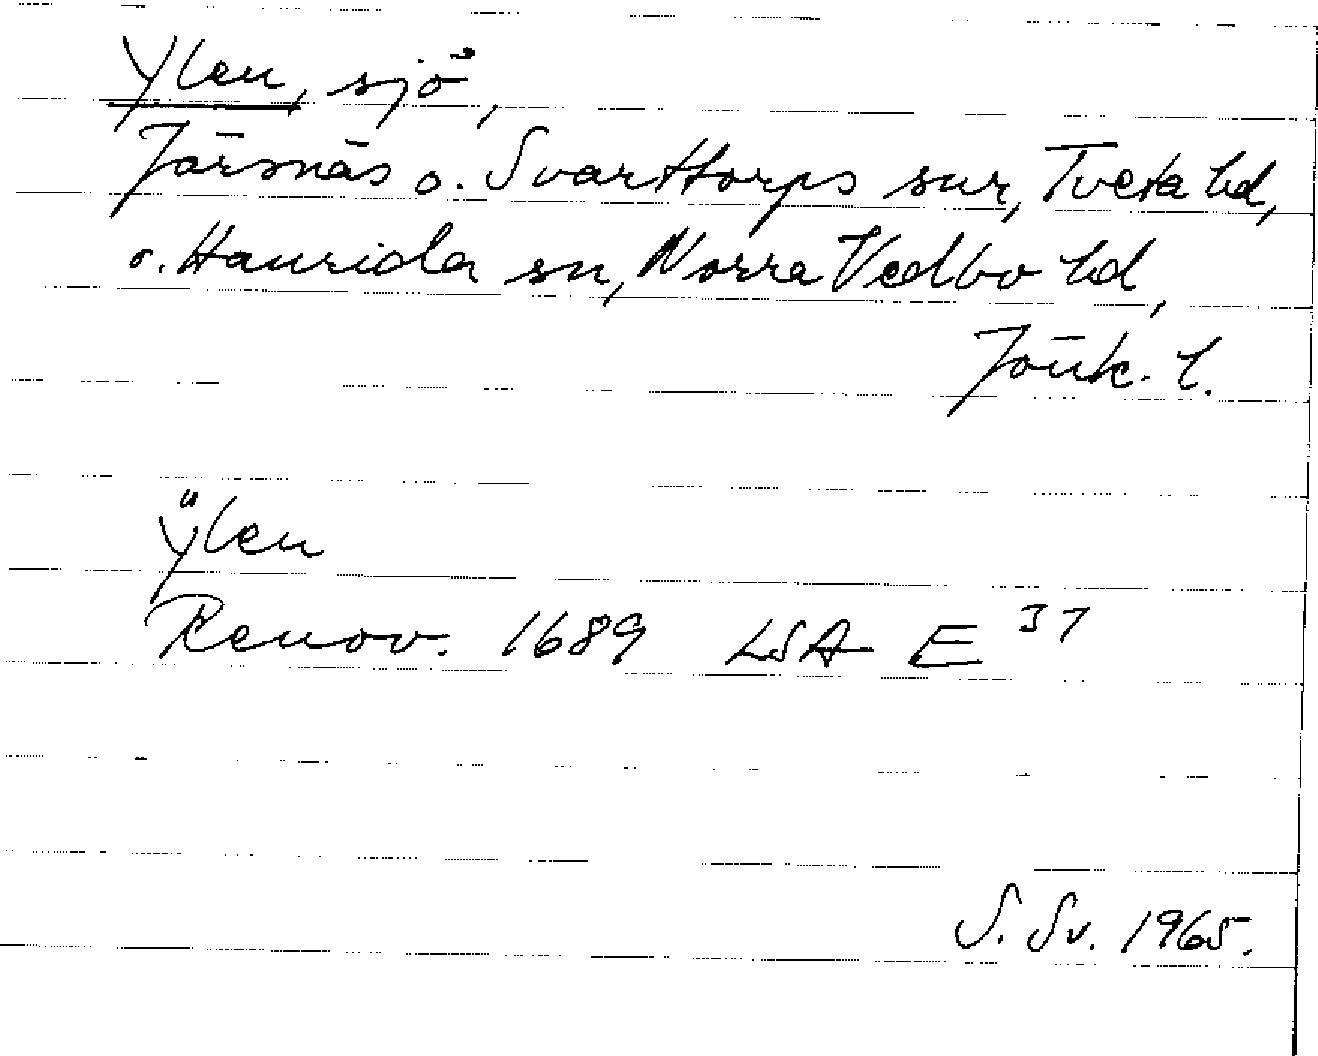 Ylen, sjö,
Järsnäs o. Svarttorps snr, Tveta hd,
o. Haurida sn, Norra Vedbo hd,
Jönk. l.
Ÿlen
Renov. 1689 LSA E 37
S. Sv. 1965.